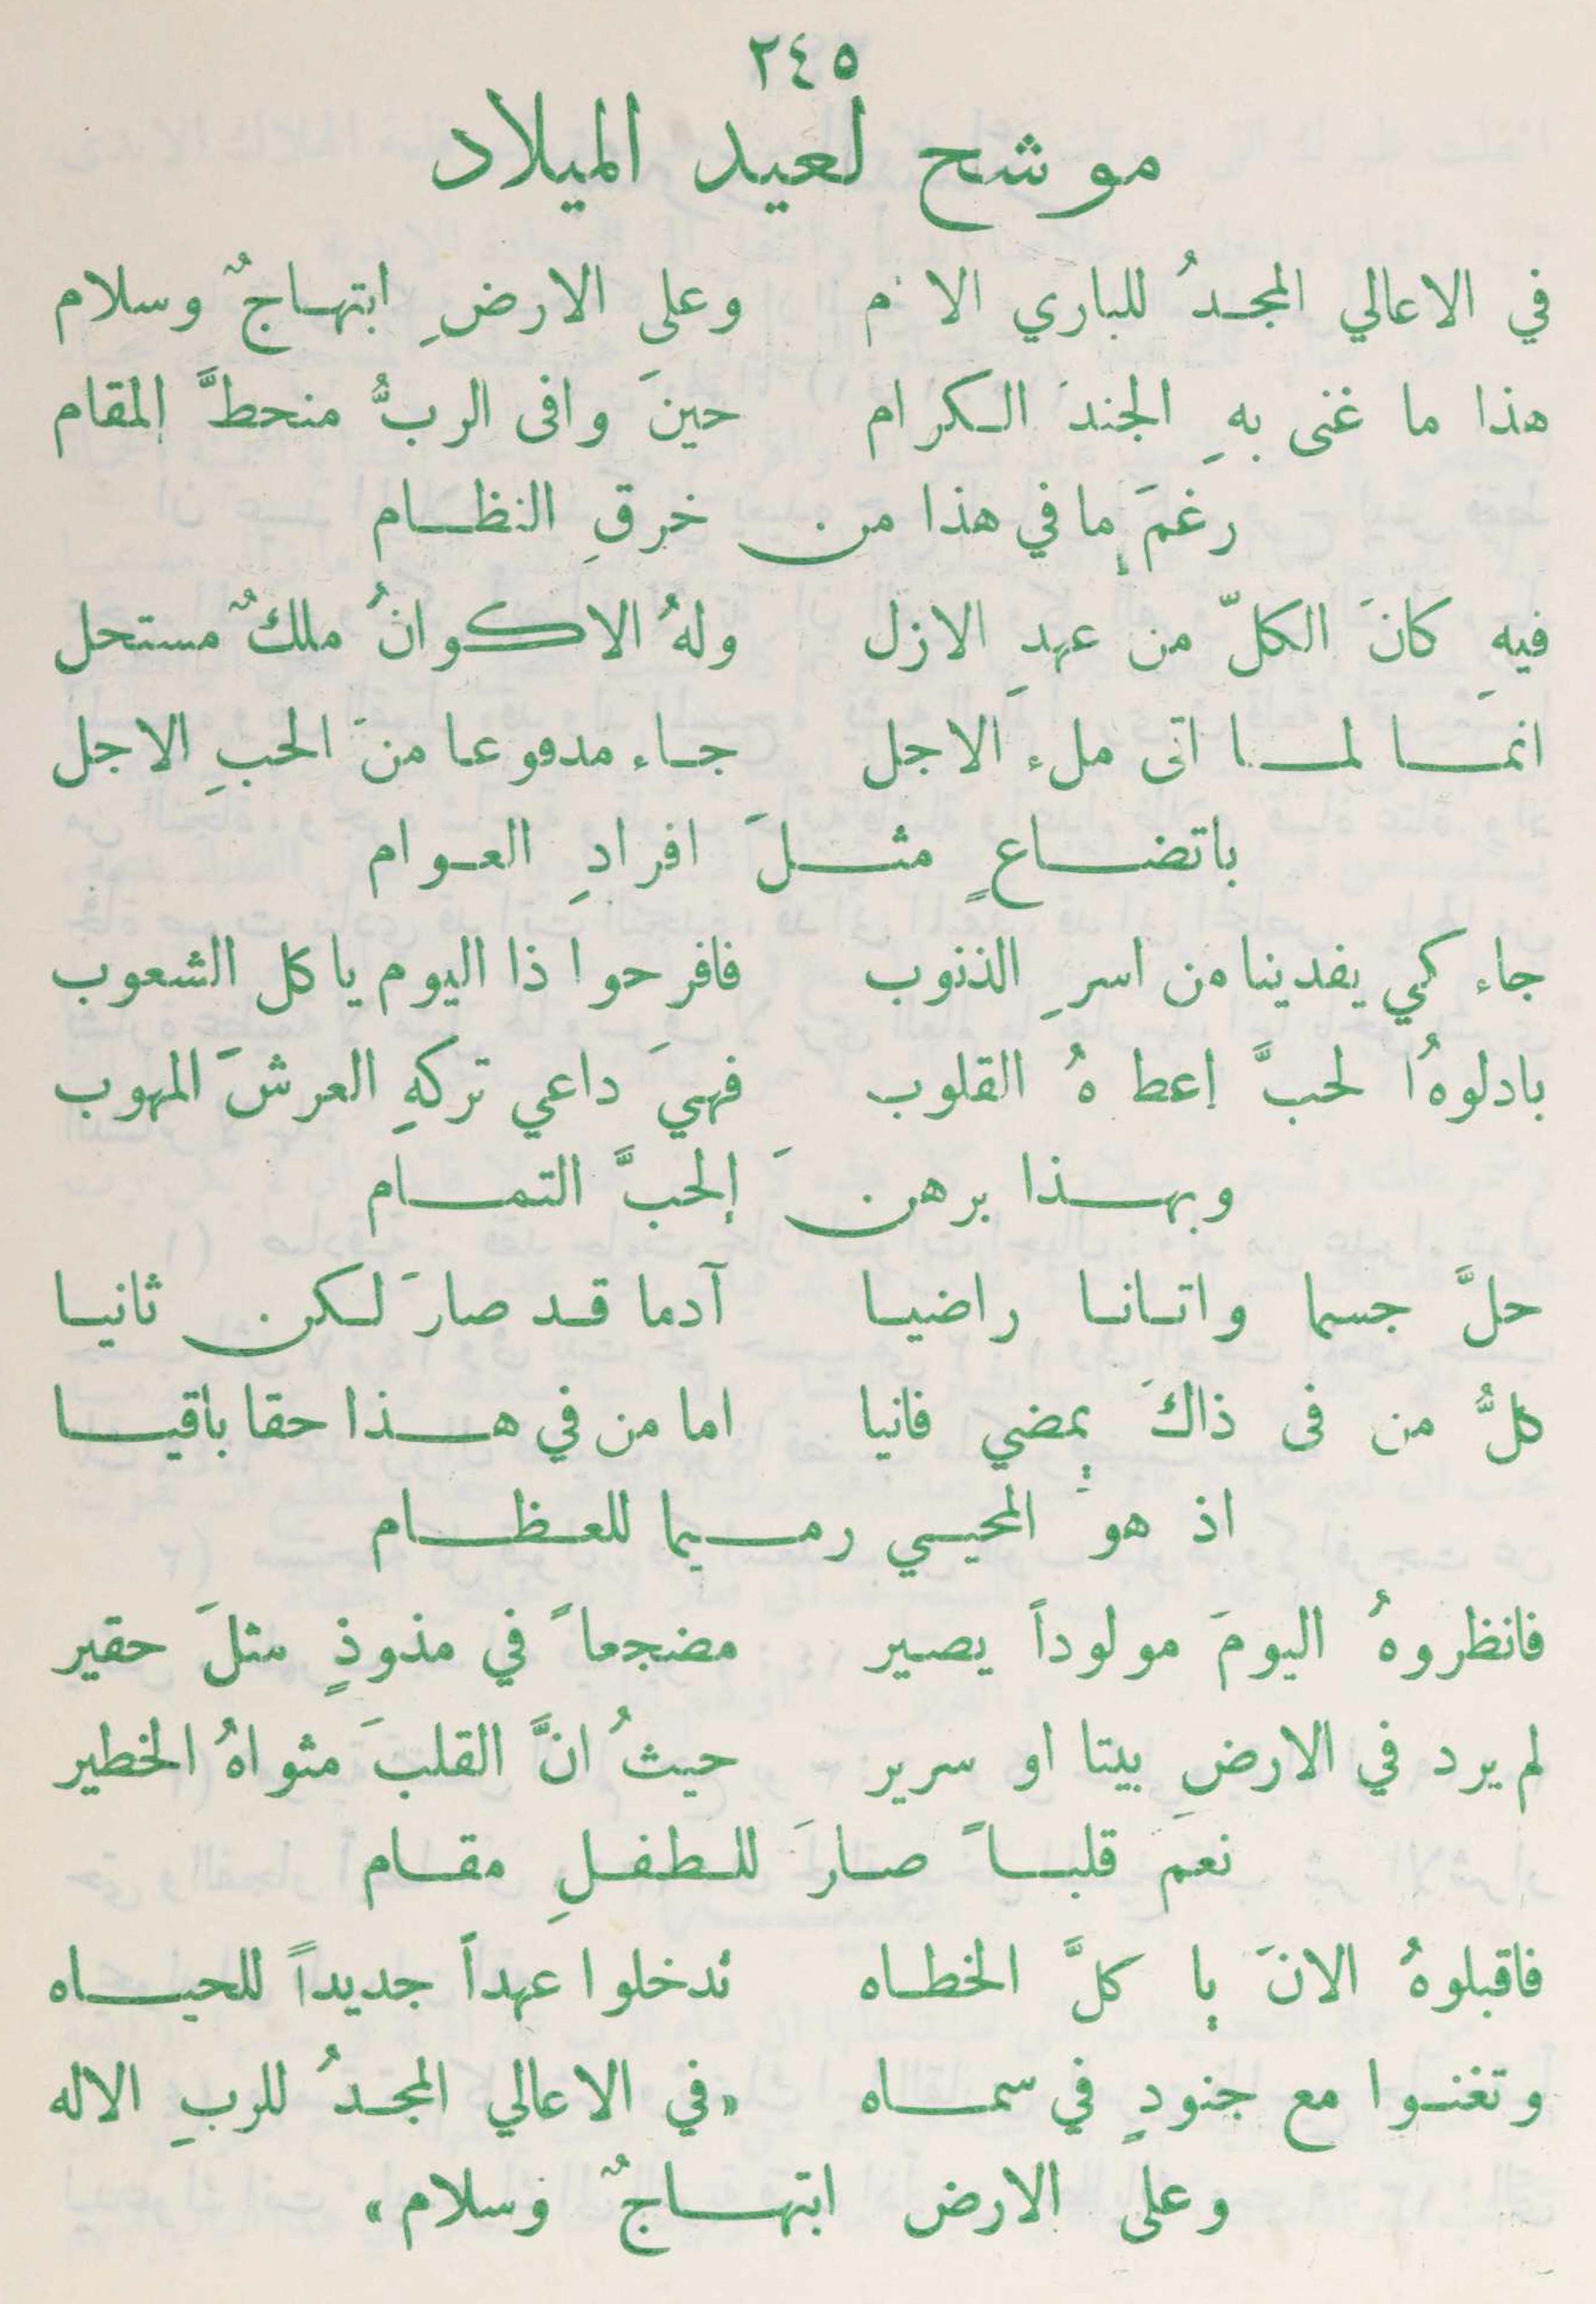 ٢٤٥
موشح لعيد الميلاد
في الاعالي المجدُ للباري الا م وعلى الارضِ ابتهاجٌ وسلام
هذا ما غنى بهِ الجندَ الكرام حينَ وافى الربُّ منحطَّ المقام
رغمَ ما في هذا من خرقِ النظام
فيهِ كانَ الكلّ من عهدِ الازل ولهُ الاكوانُ ملكٌ مستحل
انمَا لما اتى ملء الاجل جاء مدفوعا منَ الحبِ الاجل
باتضاعٍ مثلَ افرادِ العوام
جاء كي يفدينا من اسرِ الذنوب فافرحوا ذا اليوم يا كل الشعوب
بادلوهُ الحبَّ إعطاهُ القلوب فهيَ داعي تركهِ العرشَ المهوب
وبهذا برهنَ الحبَّ التمام
حلَّ جسما واتانا راضيا آدما قد صارَ لكن ثانيا
كلُّ من فى ذاكَ يمضي فانيا اما من في هذا حقا باقيا
اذ هو المحيي رميما للعظام
فانظروهُ اليومَ مولوداً يصير مضجعاً في مذوذٍ مثلَ حقير
لم يرد في الارضِ بيتا او سرير حيثُ انَّ القلبَ مثواهُ الخطير
نعمَ قلباً صارَ للطفلِ مقام
فاقبلوهُ الانَ يا كلَّ الخطاه تدخلوا عهداً جديداً للحياه
وتغنوا مع جنودٍ في سماه «في الاعالي المجدُ للربِ الاله
وعلى الارض ابتهاجٌ وسلام»